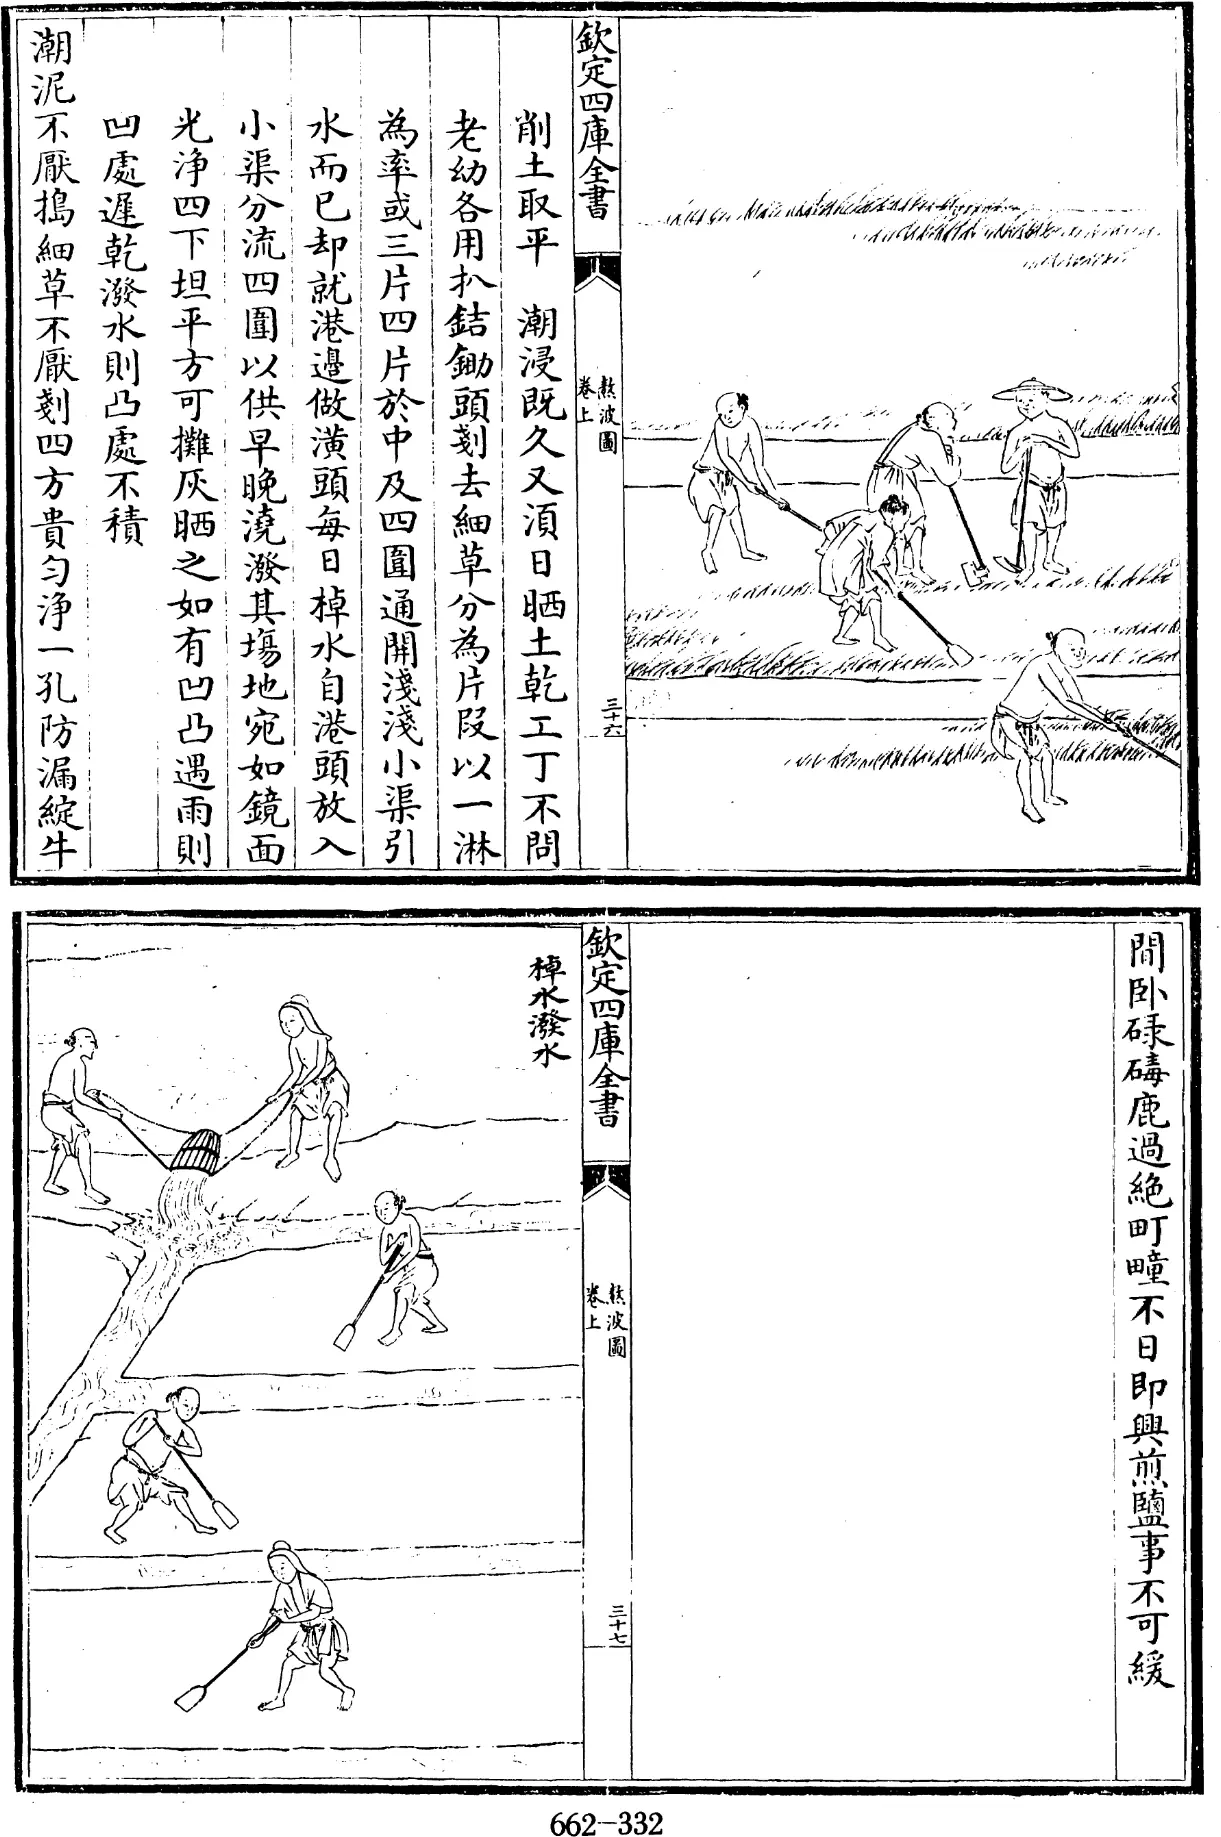 欽定四庫全書
熬波圖
卷上
三十六
削土取平　潮浸既久又湏日晒土乾工丁不問
老幼各用扒鋯鋤頭剗去細草分為片段以一淋
為率或三片四片於中及四圍通開淺淺小渠引
水而已却就港邉做潢頭每日棹水自港頭放入
小渠分流四圍以供早晚澆潑其塲地宛如鏡面
光浄四下坦平方可攤灰晒之如有凹凸遇雨則
凹處遲乾潑水則凸處不積
潮泥不厭搗細草不厭剗四方貴勻浄一孔防漏綻牛
間卧碌碡鹿過絶町疃不日即興煎鹽事不可緩
欽定四庫全書
熬波圖
卷上
三十七
棹水潑水
662-332